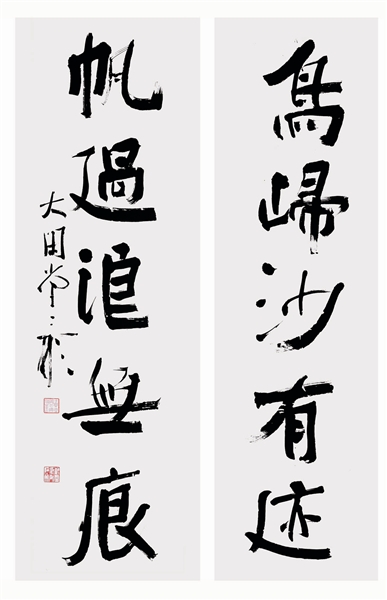 鳥歸沙有迹
帆過浪無痕
大田